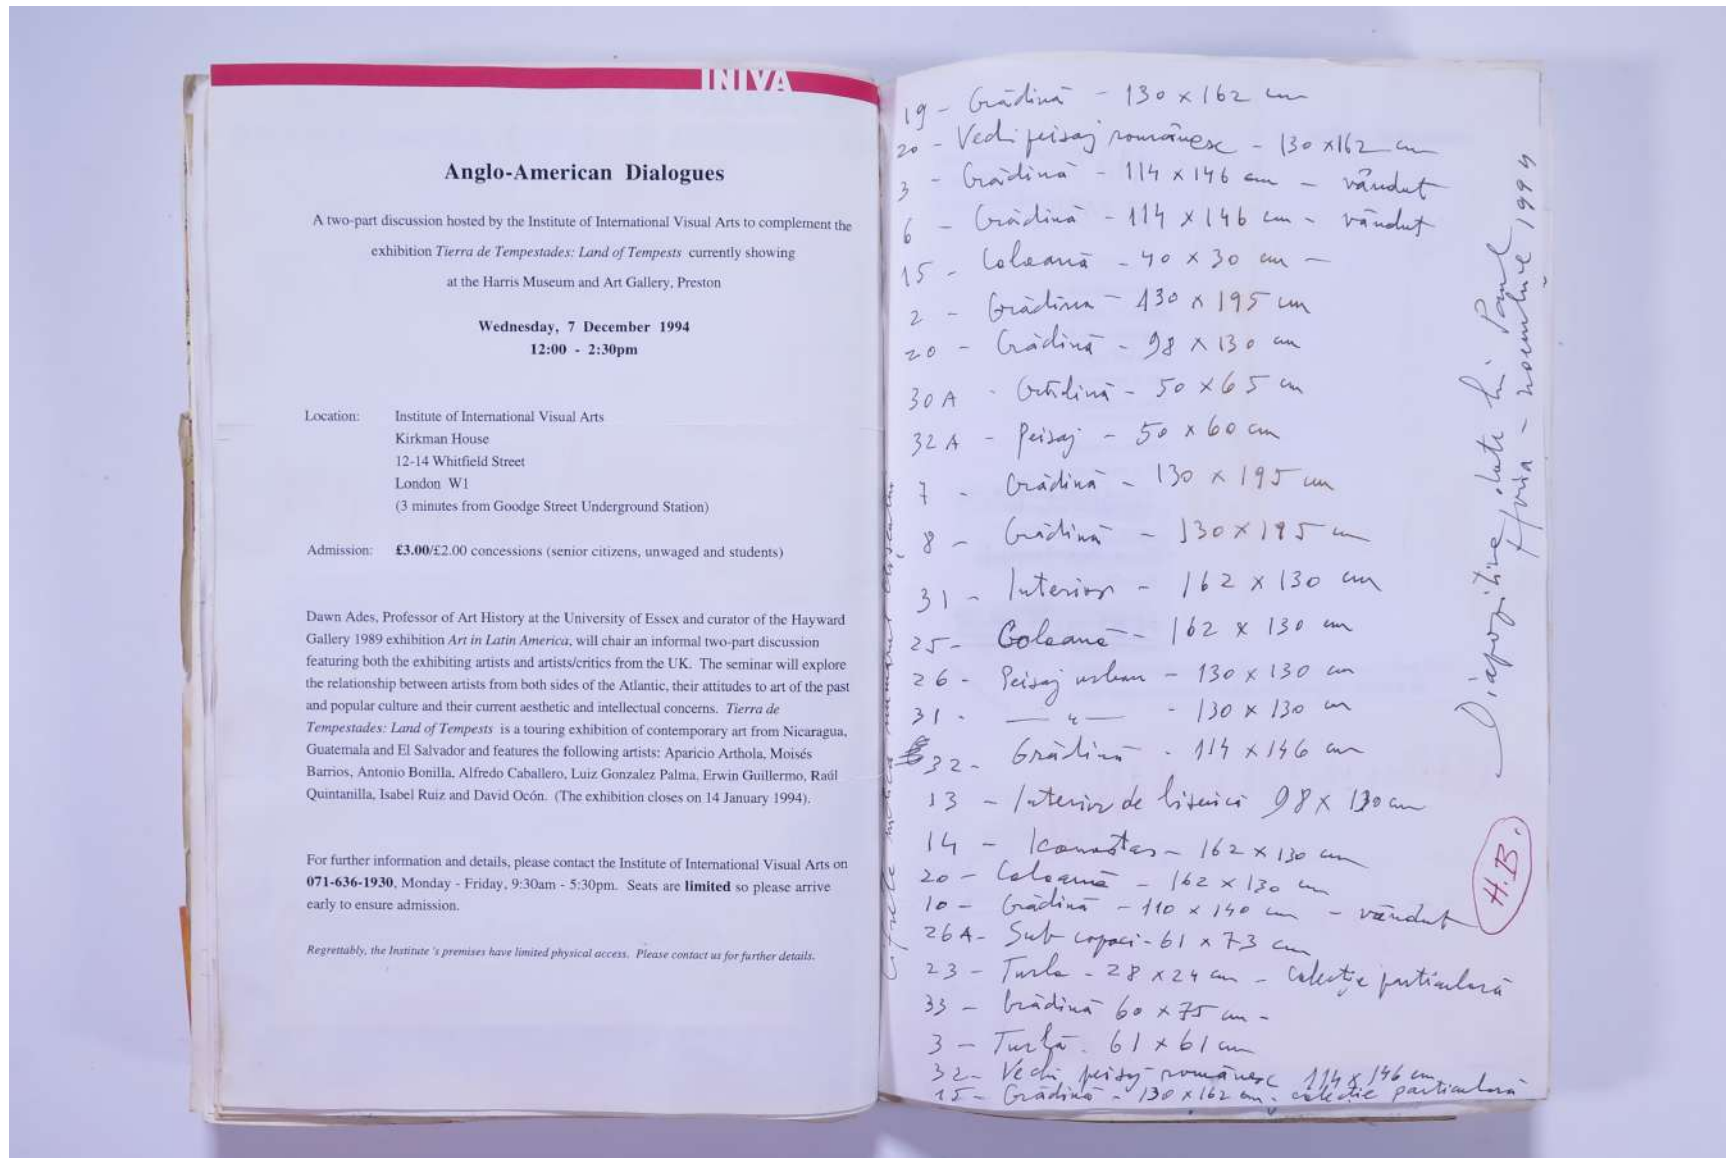 INIVA
Anglo-American Dialogues
A two-part discussion hosted by the Institute of International Visual Arts to complement the
exhibition Tierra de Tempestades: Land of Tempests currently showing
at the Harris Museum and Art Gallery, Preston
Wednesday, 7 December 1994
12:00 - 2:30pm
Location: Institute of International Visual Arts
Kirkman House
12-14 Whitfield Street
London W1
(3 minutes from Goodge Street Underground Station)
Admission: £3.00/£2.00 concessions (senior citizens, unwaged and students)
Dawn Ades, Professor of Art History at the University of Essex and curator of the Hayward
Gallery 1989 exhibition Art in Latin America, will chair an informal two-part discussion
featuring both the exhibiting artists and artists/critics from the UK. The seminar will explore
the relationship between artists from both sides of the Atlantic, their attitudes to art of the past
and popular culture and their current aesthetic and intellectual concerns. Tierra de
Tempestades: Land of Tempests is a touring exhibition of contemporary art from Nicaragua,
Guatemala and El Salvador and features the following artists: Aparicio Arthola, Moisés
Barrios, Antonio Bonilla, Alfredo Caballero, Luiz Gonzalez Palma, Erwin Guillermo, Raúl
Quintanilla, Isabel Ruiz and David Ocón. (The exhibition closes on 14 January 1994).
For further information and details, please contact the Institute of International Visual Arts on
071-636-1930, Monday - Friday, 9:30am - 5:30pm. Seats are limited so please arrive
early to ensure admission.
Regrettably, the Institute's premises have limited physical access. Please contact us for further details.
19 - Grădină - 130 x 162 cm
20 - Vechi peisaj românesc - 130 x 162 cm
3 - Grădină - 114 x 146 cm - vândut
6 - Grădină - 114 x 146 cm - vândut
15 - Coloană - 40 x 30 cm -
2 - Grădina - 130 x 195 cm
20 - Grădină - 98 x 130 cm
30 A - Grădină - 50 x 65 cm
32 A - Peisaj - 50 x 60 cm
7 - Grădină - 130 x 195 cm
8 - Grădină - 130 x 195 cm
31 - Interior - 162 x 130 cm
25 - Coloană - 162 x 130 cm
26 - Peisaj urban - 130 x 130 cm
31 - — " — - 130 x 130 cm
32 - Grădină - 114 x 146 cm
13 - Interior de biserică 98 x 130 cm
14 - Iconostas - 162 x 130 cm
20 - Coloană - 162 x 130 cm
10 - Grădină - 110 x 140 cm - vândut
26A - Sub copaci - 61 x 73 cm
23 - Turla - 28 x 24 cm - colecție particulară
33 - Grădină 60 x 75 cm -
3 - Turlă - 61 x 61 cm
32 - Vechi peisaj românesc 114 x 146 cm
15 - Grădină - 130 x 162 cm - colecție particulară
Diapozitive date lui Paul
Horia - noembrie 1994
H.B.
Cifrele indică numărul clișeului